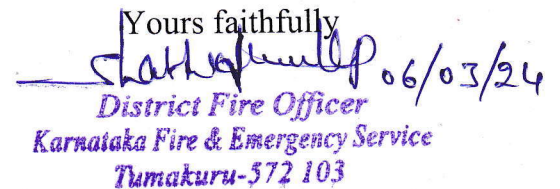 Yours faithfully
06/03/24
District Fire Officer
Karnataka Fire & Emergency Service
Tumakuru-572 103